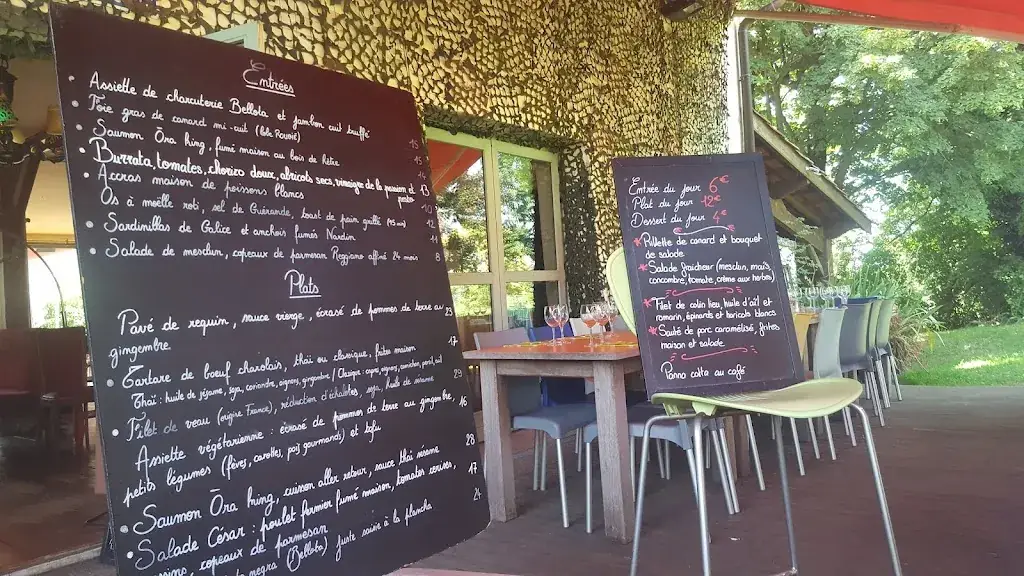 Entrées
• Assiette de charcuterie Bellota et jambon cuit truffé 15
• Foie gras de canard mi-cuit 15
• Saumon Ōra King, fumé maison au bois de hêtre
• Burrata, tomates, chorizo doux, abricots secs, vinaigre de la passion et 13
• Accras maison de poissons blancs 10
• Os à moëlle roti, sel de Guérande, toast de pain grillé 12
• Sardinillas de Galice et anchois fumés Nardin
• Salade de mesclun, copeaux de parmesan Reggiano affiné 24 mois 8
Plats
• Pavé de requin, sauce vierge, écrasé de pommes de terre au 23
gingembre
• Tartare de bœuf charolais, thaï ou classique, frites maison 17
Thaï : huile de sésame, soja, coriandre, oignons, gingembre / Classique : capres, oignons, cornichon, persil
• Filet de veau (origine France), réduction d'échalotes, soja, huile de sésame 29
• Assiette végétarienne : écrasé de pommes de terre au gingembre, 16
petits légumes (fèves, carottes, pois gourmands) et tofu
• Saumon Ōra King, cuisson aller retour, sauce thaï sésame 28
• Salade César : poulet fermier fumé maison, tomates cerises, 17
copeaux de parmesan
negra (Bellota) juste saisie à la plancha 24
Entrée du jour 6€
Plat du jour 12€
Dessert du jour 4€
* Rillette de canard et bouquet
de salade
* Salade fraicheur (mesclun, maïs,
concombre, tomate, crème aux herbes)
* Filet de colin lieu, huile d'ail et
romarin, épinards et haricots blancs
* Sauté de porc caramélisé, frites
maison et salade
Panna cotta au café